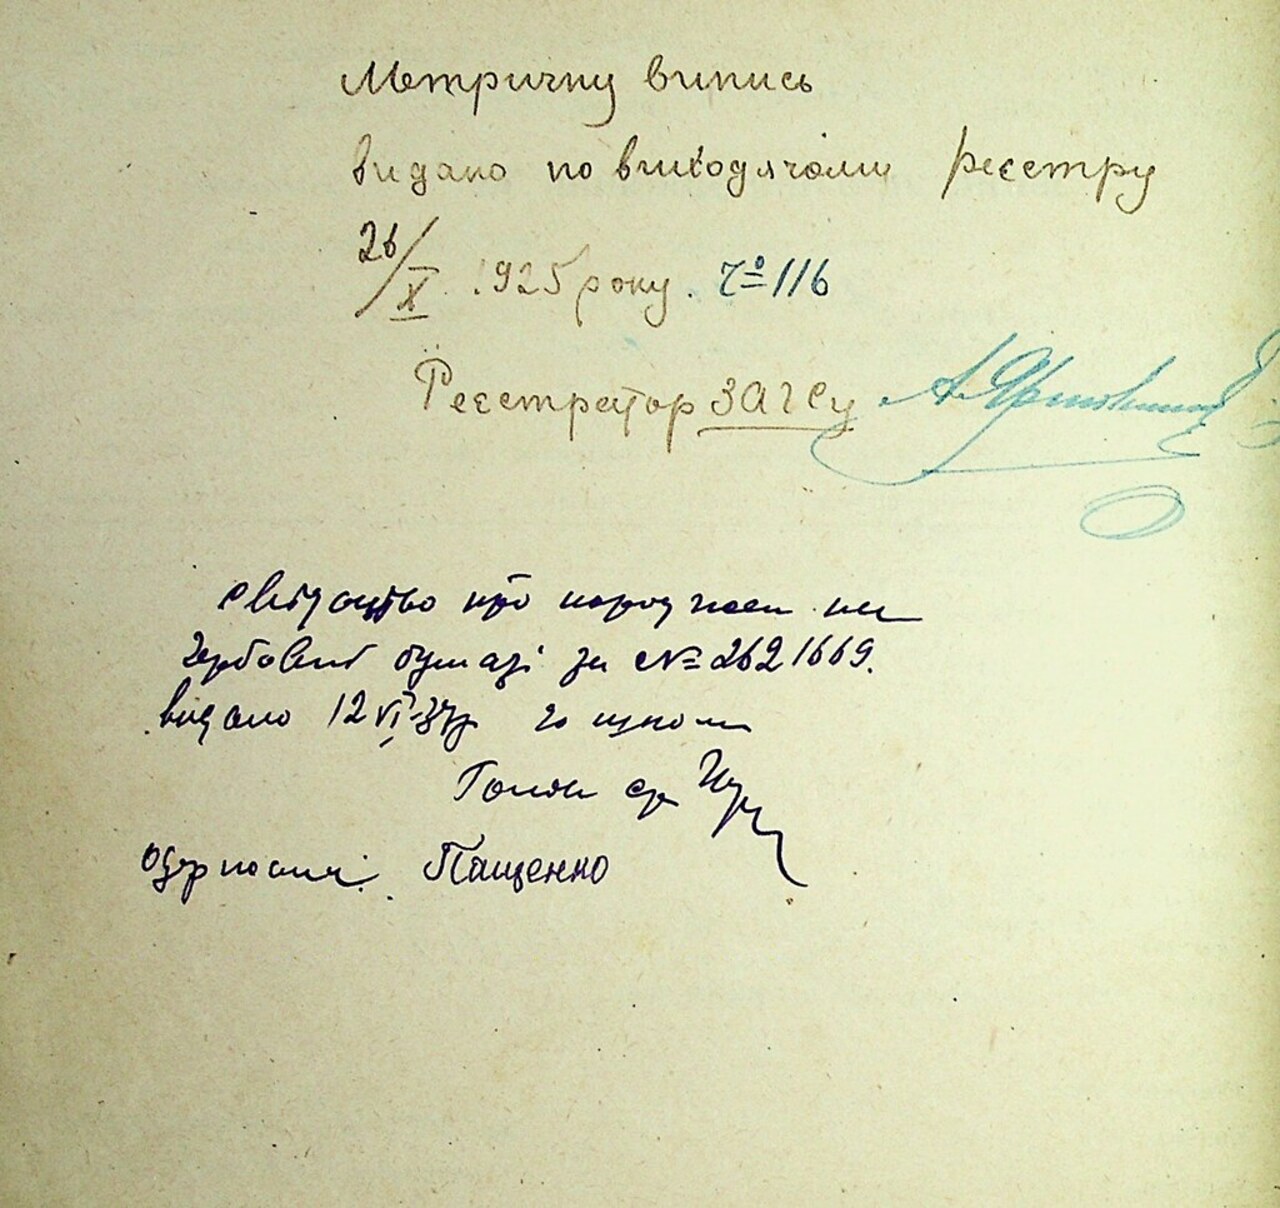 Метричну випись
видано по виходячому реєстру
26/X 1925 року. Ч° 116
Реєстратор ЗАГСу
свідоцтво про народжен на
гербовий бумазі за № 2621669.
видано 12 VI-37р
Голова с/р
одержали Пащенко